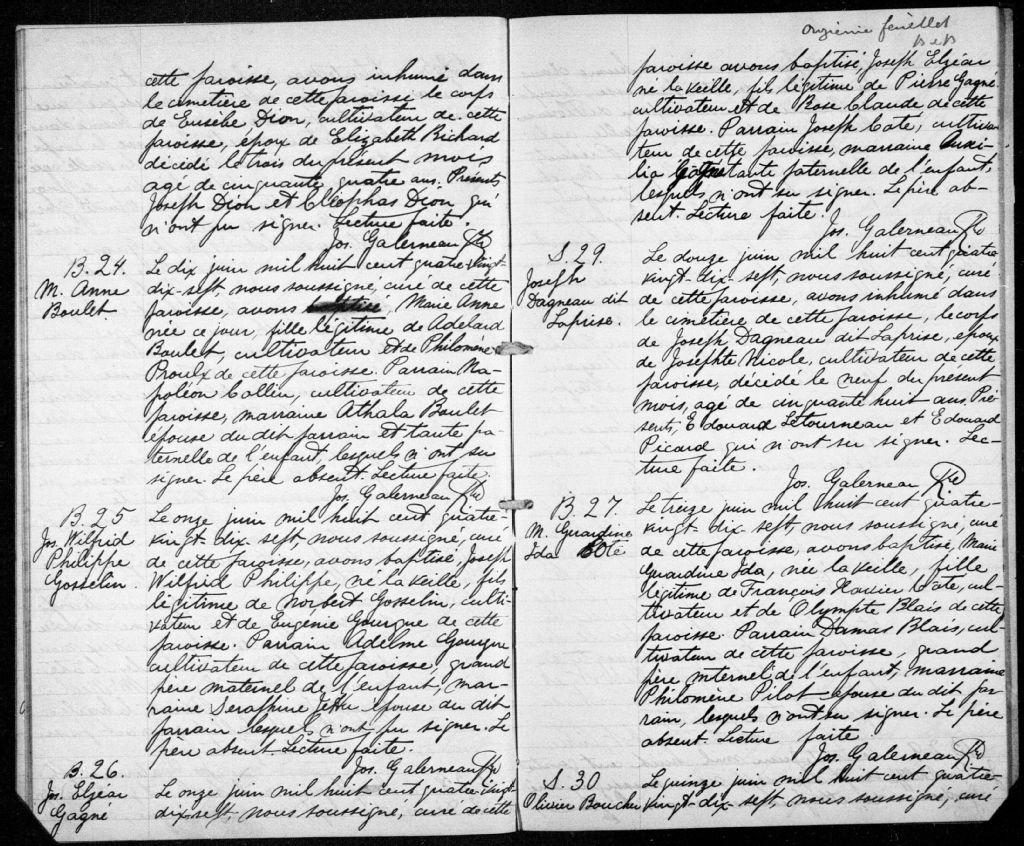 cette paroisse, avons inhumé dans
le cimetière de cette paroisse le corps
de Eusèbe Dion, cultivateur de cette
paroisse, époux de Elizabeth Richard
décidé le trois du présent mois
agé de cinquante quatre ans. Présents
Joseph Dion et Cléophas Dion qui
n'ont pu signer. Lecture faite.
Jos. Galerneau Ptre
B. 24.
M. Anne
Boulet
Le dix juin mil huit cent quatre-vingt-
dix-sept, nous soussigné, curé de cette
paroisse, avons baptisé, Marie Anne
née ce jour, fille légitime de Adelard
Boulet, cultivateur et de Philomène
Proulx de cette paroisse. Parrain Na-
poléon Collin, cultivateur de cette
paroisse, marraine Athala Boulet
épouse du dit parrain et tante pa-
ternelle de l'enfant, lesquels n'ont su
signer. Le père absent. Lecture faite.
Jos. Galerneau Ptre
B. 25
Jos. Wilfrid
Philippe
Gosselin.
Le onze juin mil huit cent quatre-
vingt-dix-sept, nous soussigné, curé
de cette paroisse, avons baptisé, Joseph
Wilfrid Philippe, né la veille, fils
légitime de Norbert Gosselin, culti-
vateur et de Eugénie Gourgue de cette
paroisse. Parrain Adelme Gourgue
cultivateur de cette paroisse, grand
père maternel de l'enfant, mar-
raine Seraphine épouse du dit
parrain lesquels n'ont pu signer. Le
père absent. Lecture faite.
Jos. Galerneau Ptre
B. 26.
Jos. Elzéar
Gagné
Le onze juin mil huit cent quatre-vingt-
dix-sept, nous soussigné, curé de cette
onzième feuillet
paroisse avons baptisé, Joseph Elzéar
né la veille, fils légitime de Pierre Gagné
cultivateur et de Rose Claude de cette
paroisse. Parrain Joseph Coté, cultiva
teur de cette paroisse, marraine Auxi-
lia tante paternelle de l'enfant,
lesquels n'ont su signer. Le père ab-
sent. Lecture faite.
Jos. Galerneau Ptre
S. 29.
Joseph
Dagneau dit
Laprise.
Le douze juin mil huit cent quatre
vingt-dix-sept, nous soussigné, curé
de cette paroisse, avons inhumé dans
le cimetière de cette paroisse, le corps
de Joseph Dagneau dit Laprise, époux
de Josephte Nicole, cultivateur de cette
paroisse, décidé le neuf du présent
mois, agé de cinquante huit ans. Pré-
sents, Edouard Létourneau et Edouard
Picard qui n'ont su signer. Lec-
ture faite.
Jos. Galerneau Ptre
B. 27.
M. Guardine
Ida Coté
Le treize juin mil huit cent quatre-
vingt-dix-sept, nous soussigné, curé
de cette paroisse, avons baptisé, Marie
Guardine Ida, née la veille, fille
légitime de François Xavier Coté, cul-
tivateur et de Olympte Blais de cette
paroisse. Parrain Damas Blais, cul-
tivateur de cette paroisse, grand
père internel de l'enfant, marraine
Philomène Pilot épouse du dit par-
rain, lesquels n'ont su signer. Le père
absent. Lecture faite
Jos. Galerneau Ptre
S. 30
Olivier Boucher
Le quinze juin mil huit cent quatre-
vingt-dix-sept, nous soussigné, curé